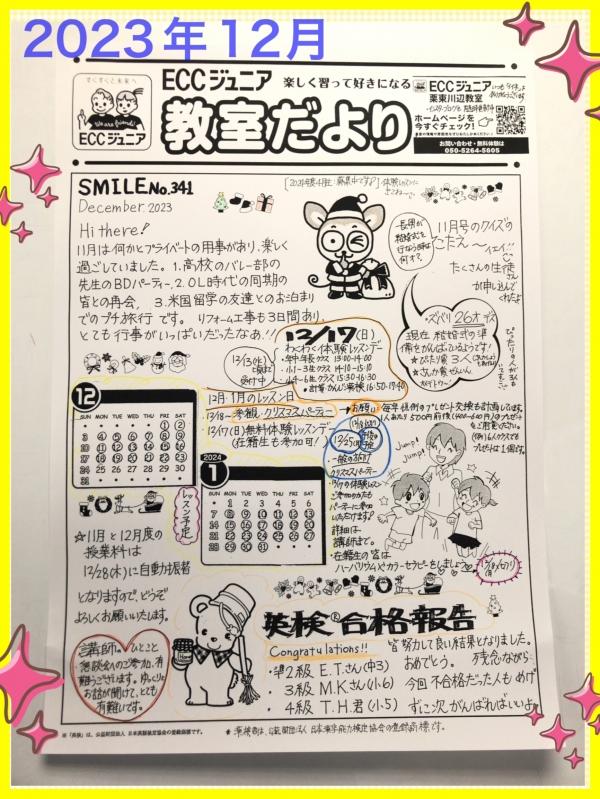 2023年12月
すくすくと未来へ
We are friends!
ECCジュニア
ECCジュニア 楽しく習って好きになる
教室だより
ECCジュニア
栗東川辺教室
ホームページを
今すぐチェック!
お問い合わせ・無料体験は
050-5264-5605
SMILE No.341
December 2023
Hi there!
11月は何かとプライベートの用事があり、楽しく
過ごしていました。1.高校のバレー部の
先生のBDパーティー、2.OL時代の同期の
皆との再会、3.米国留学の友達とのお泊まり
でのプチ旅行です。リフォーム工事も3日間あり、
とても行事がいっぱいだったなあ!!
11月号のクイズの
こたえ〜
たくさんの生徒さん
が申し込んで
くれたよ
ズバリ26才デス
現在結婚式の準
備をがんばっているようです!
ぴったり賞3人
さんか賞ぜんいん
12/17(日)
わくわく体験レッスンデー
・年中年長クラス 13:00-14:00
・小1-3生クラス 14:10-15:10
・小4-6生クラス 15:30-16:30
12/13(水)
受付中
12月・1月のレッスン日
12/18〜参観・クリスマスパーティー
12/17(日)無料体験レッスンデー
(在籍生も参加可!)
お願い
クリスマスパーティー
詳細は
講師まで。
・在籍生の皆は
ハーバリウムやカラーセラピーをしましょう
Jump!
Jump!
12
SUN MON TUE WED THU FRI SAT
1 2
3 4 5 6 7 8 9
10 11 12 13 14 15 16
17 18 19 20 21 22 23
24 25 26 27 28 29 30
31
レッスン予定
2024
1
SUN MON TUE WED THU FRI SAT
1 2 3 4 5 6
7 8 9 10 11 12 13
14 15 16 17 18 19 20
21 22 23 24 25 26 27
28 29 30 31
☆11月と12月度の
授業料は
12/28(木)に自動振替
となりますので、どうぞ
よろしくお願いいたします。
講師のひとこと
懇談会へのご参加、有
難うございます。ゆっくりと
お話が聞けて、とても
有難いです。
英検® 合格報告
Congratulations!!
・準2級 E.T.さん(中3)
・3級 M.K.さん(小6)
・4級 T.H.君(小5)
皆努力して良い結果となりました。
おめでとう。残念ながら
今回不合格だった人もめげ
ずに次がんばればいいよ
※「英検」は、公益財団法人 日本英語検定協会の登録商標です。
*漢検者は、公益財団法人 日本漢字能力検定協会の登録商標です。